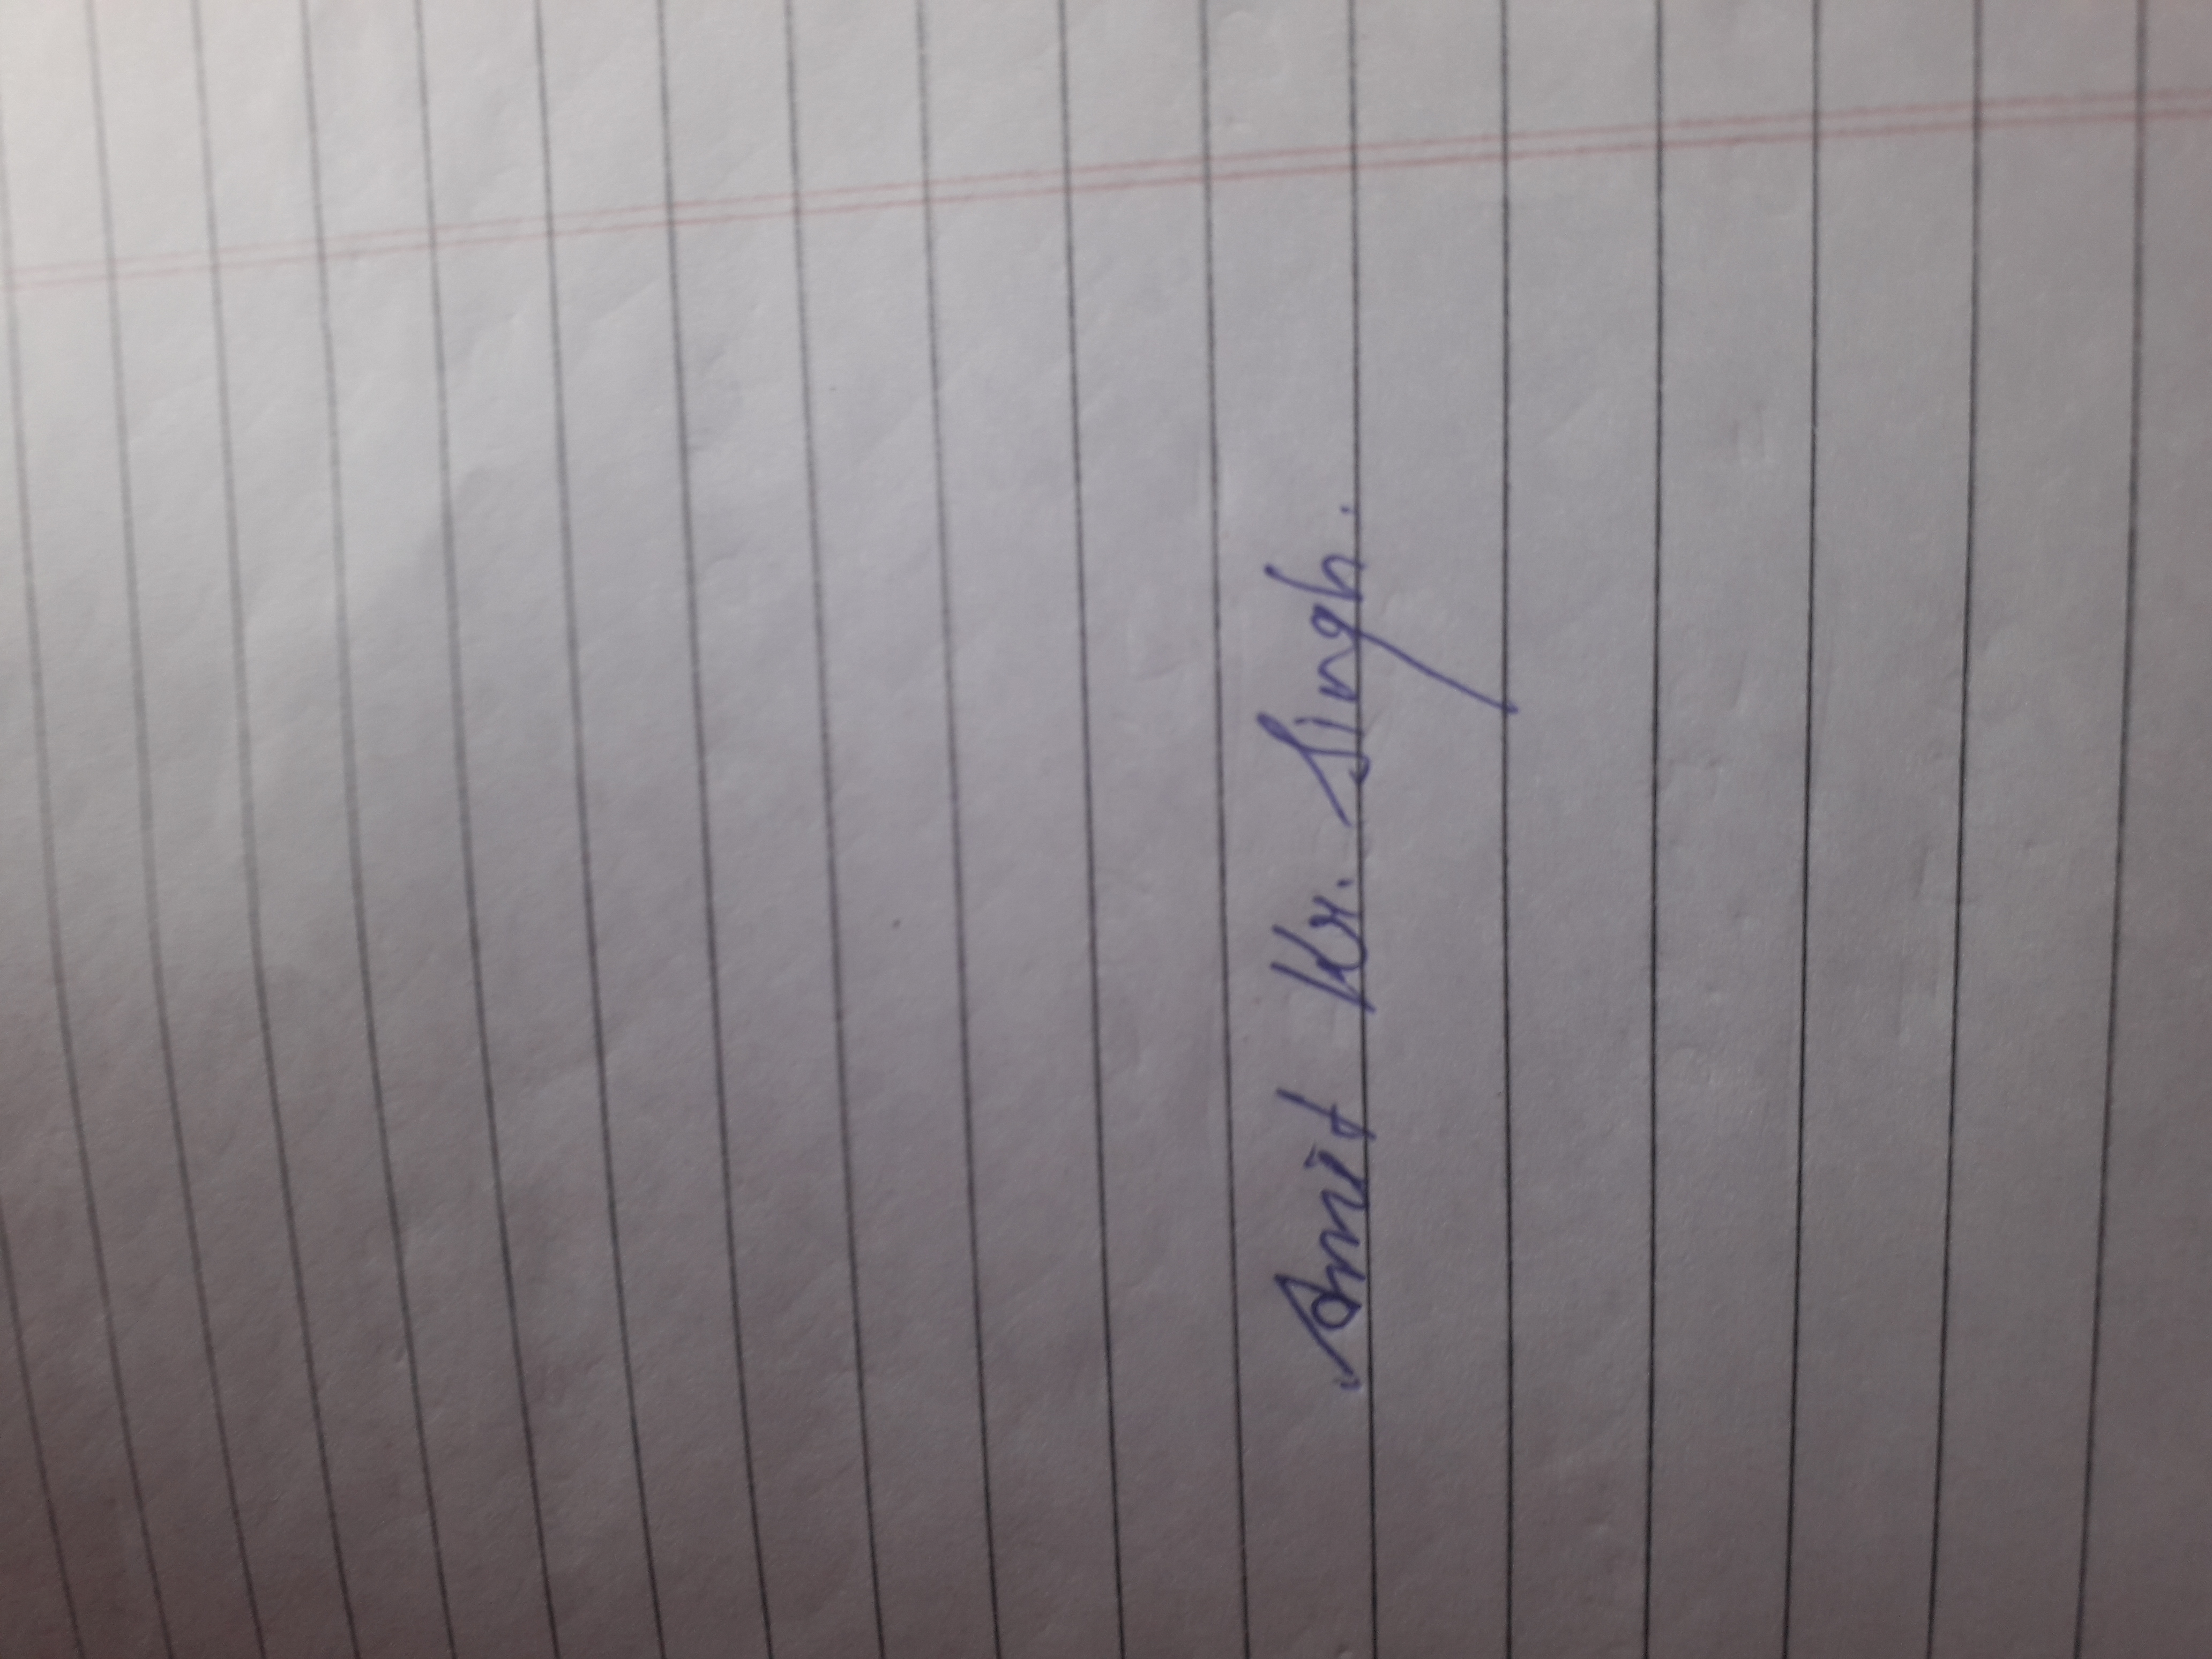 Amit Kr. Singh.